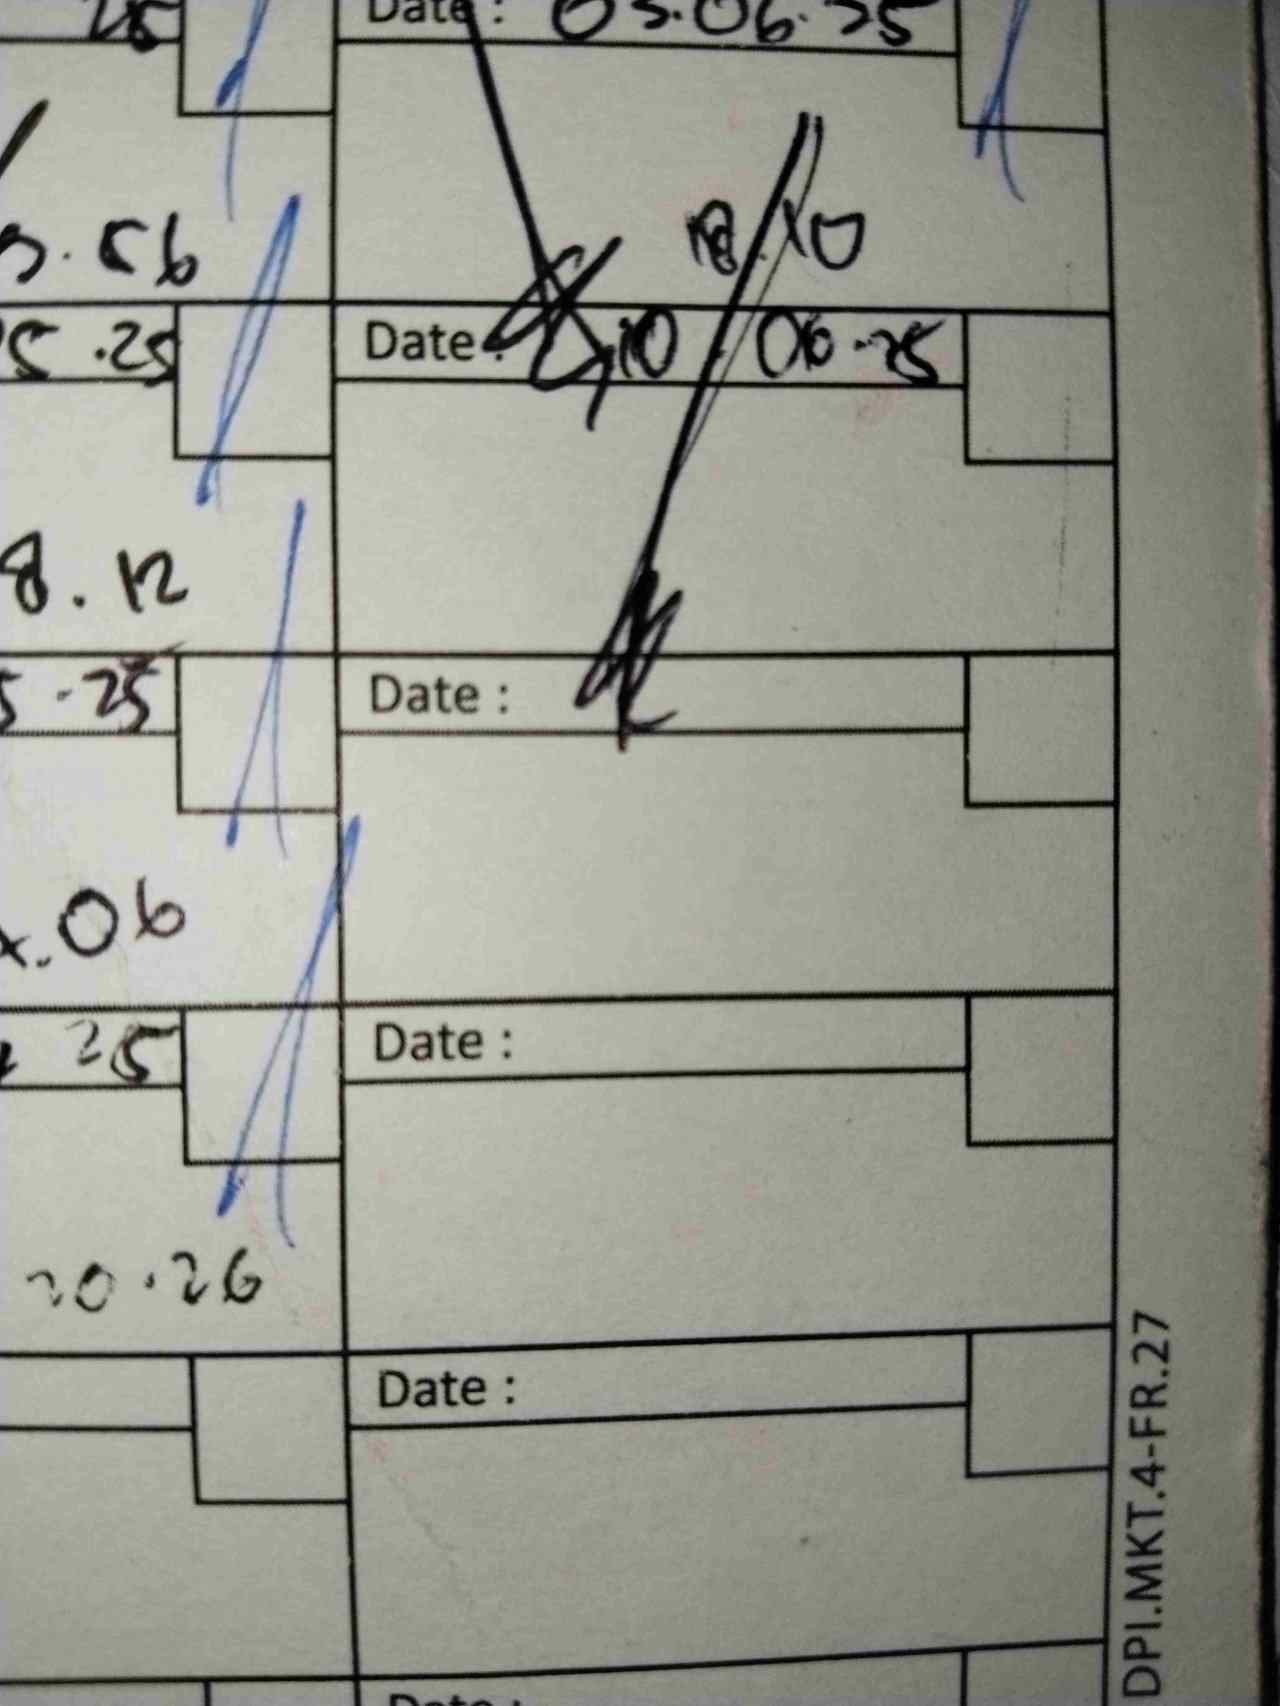 25 Date : 03.06.25
.56 18.10
5.25 Date : 10.06.25
8.12
5.25 Date :
.06
25 Date :
20.26
Date :
Date :
DPI.MKT.4-FR.27